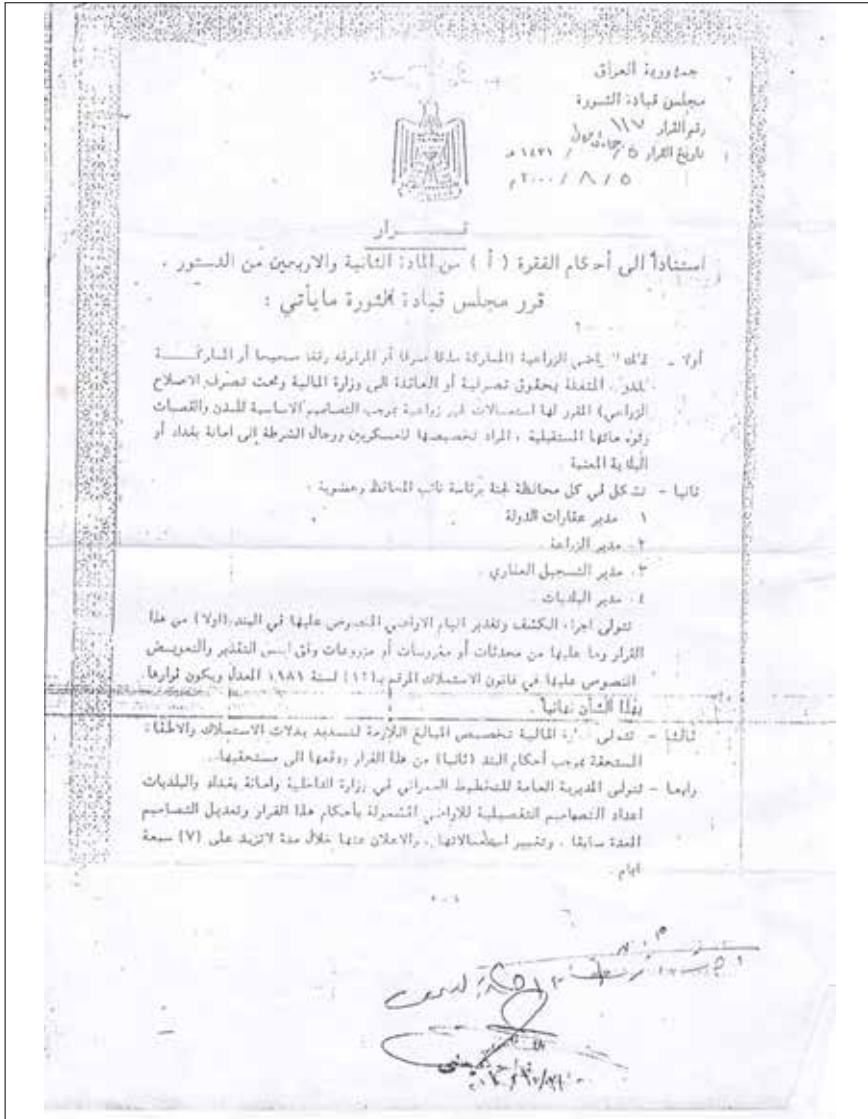 جمهورية العراق
مجلس قيادة الثورة
رقم القرار ١١٧
تاريخ القرار ٥ / جمادى الاول / ١٤٢١ هـ
٥ / ٨ / ٢٠٠٠ م
قـــرار
استناداً الى أحكام الفقرة ( أ ) من المادة الثانية والاربعين من الدستور .
قرر مجلس قيادة الثورة مايأتي :
أولا - الاراضي الزراعية (المملوكة ملكا صرفا أو الموقوفة وقفا صحيحا أو المملوكة
المثقلة بحقوق تصرفية أو العائدة الى وزارة المالية وتحت تصرف الاصلاح
الزراعي) المقرر لها استعمالات غير زراعية بموجب التصاميم الاساسية للمدن والقصبات
المستقبلية ، المراد تخصيصها للعسكريين ورجال الشرطة إلى امانة بغداد أو
البلدية المعنية .
ثانيا - تشكل في كل محافظة لجنة برئاسة نائب المحافظ وعضوية :
١ . مدير عقارات الدولة
٢ . مدير الزراعة .
٣ . مدير التسجيل العقاري .
٤ . مدير البلديات .
تتولى اجراء الكشف وتقدير اقيام الاراضي المنصوص عليها في البند (اولا) من هذا
القرار وما عليها من محدثات أو مغروسات أو مزروعات وفق اسس التقدير والتعويض
المنصوص عليها في قانون الاستملاك المرقم بـ(١٢) لسنة ١٩٨١ المعدل ويكون قرارها
بهذا الشأن نهائياً .
ثالثا - تتولى وزارة المالية تخصيص المبالغ اللازمة لتسديد بدلات الاستملاك والاطفاء
المستحقة بموجب أحكام البند (ثانيا) من هذا القرار ودفعها الى مستحقيها .
رابعا - تتولى المديرية العامة للتخطيط العمراني في وزارة الداخلية وامانة بغداد والبلديات
اعداد التصاميم التفصيلية للاراضي المشمولة بأحكام هذا القرار وتعديل التصاميم
المعدة سابقا ، وتغيير استعمالاتها ، والاعلان عنها خلال مدة لاتزيد على (٧) سبعة
ايام .